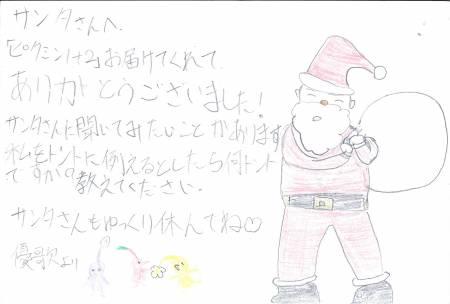 サンタさんへ
「ピクミン1+2」お届けてくれて
ありがとうございました!
サンタさんに聞いてみたいことがあります
私をドントに例えるとしたら何ドント
ですか?教えてください。
サンタさんもゆっくり休んでね♡
優歌より